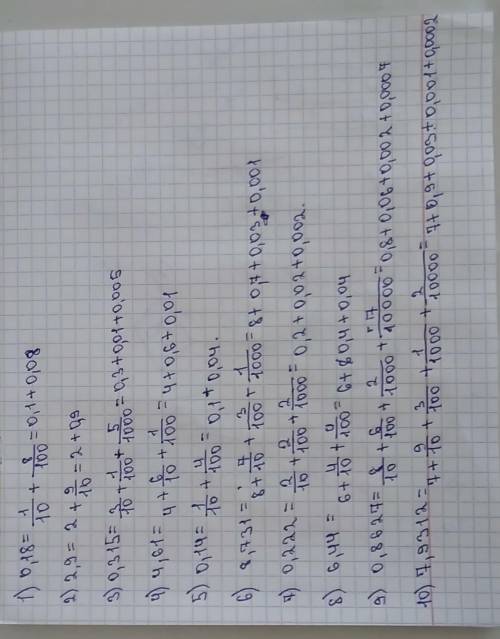 1) 0,18 = 1/10 + 8/100 = 0,1 + 0,08
2) 2,9 = 2 + 9/10 = 2 + 0,9
3) 0,315 = 3/10 + 1/100 + 5/1000 = 0,3 + 0,01 + 0,005
4) 4,61 = 4 + 6/10 + 1/100 = 4 + 0,6 + 0,01
5) 0,14 = 1/10 + 4/100 = 0,1 + 0,04.
6) 8,731 = 8 + 7/10 + 3/100 + 1/1000 = 8 + 0,7 + 0,03 + 0,001
7) 0,222 = 2/10 + 2/100 + 2/1000 = 0,2 + 0,02 + 0,002.
8) 6,44 = 6 + 4/10 + 4/100 = 6 + 0,4 + 0,04
9) 0,8627 = 8/10 + 6/100 + 2/1000 + 7/10000 = 0,8 + 0,06 + 0,002 + 0,0007
10) 7,9312 = 7 + 9/10 + 3/100 + 1/1000 + 2/10000 = 7 + 0,9 + 0,03 + 0,001 + 0,0002